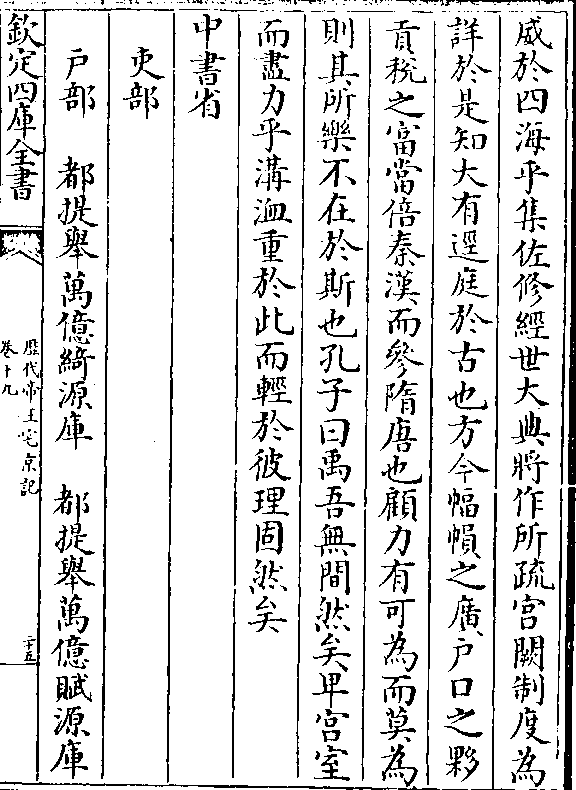 威於四海乎集佐修經世大典將作所疏宫闕制度為
詳於是知大有逕庭於古也方今幅幀之廣户口之夥
貢税之富當倍秦漢而參隋唐也顧力有可為而莫為
則其所樂不在於斯也孔子曰禹吾無間然矣卑宫室
而盡力乎溝洫重於此而輕於彼理固然矣
中書省
吏部
户部 都提舉萬億綺源庫 都提舉萬億賦源庫
欽定四庫全書
歴代帝王宅京記
卷十九
二十五